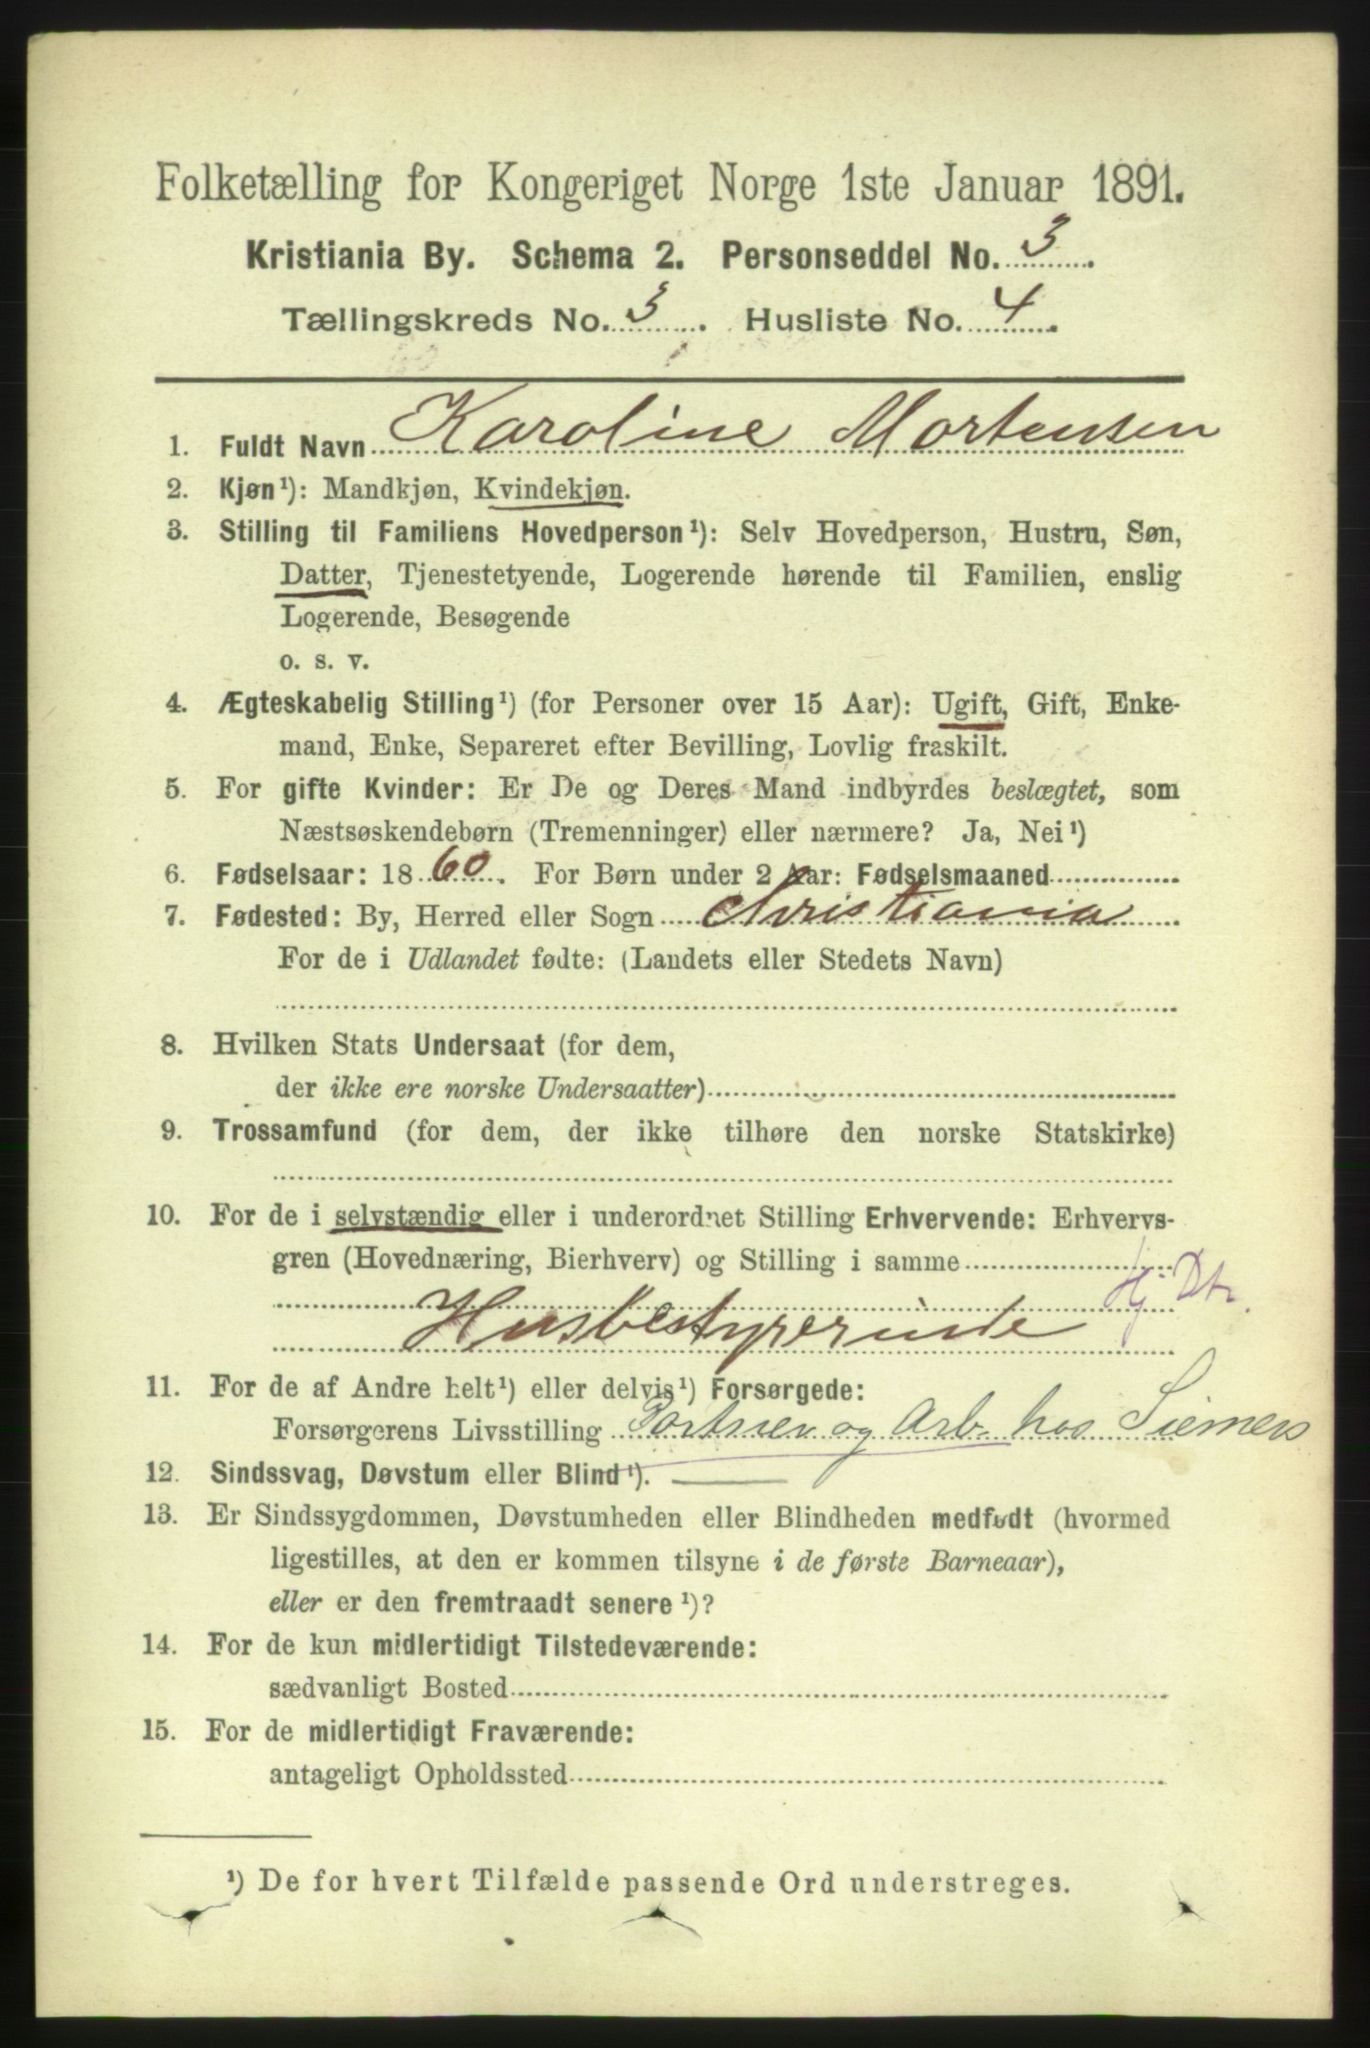 Folketælling for Kongeriget Norge 1ste Januar 1891.
Kristiania By. Schema 2. Personseddel No. 3.
Tællingskreds No. 3. Husliste No. 4.
1. Fuldt Navn Karoline Mortensen
2. Kjøn¹): Mandkjøn, Kvindekjøn.
3. Stilling til Familiens Hovedperson¹): Selv Hovedperson, Hustru, Søn,
Datter, Tjenestetyende, Logerende hørende til Familien, enslig
Logerende, Besøgende
o. s. v.
4. Ægteskabelig Stilling¹) (for Personer over 15 Aar): Ugift, Gift, Enke-
mand, Enke, Separeret efter Bevilling, Lovlig fraskilt.
5. For gifte Kvinder: Er De og Deres Mand indbyrdes beslægtet, som
Næstsøskendebørn (Tremenninger) eller nærmere? Ja, Nei¹)
6. Fødselsaar: 1860. For Børn under 2 Aar: Fødselsmaaned
7. Fødested: By, Herred eller Sogn Christiania
For de i Udlandet fødte: (Landets eller Stedets Navn)
8. Hvilken Stats Undersaat (for dem,
der ikke ere norske Undersaatter)
9. Trossamfund (for dem, der ikke tilhøre den norske Statskirke)
10. For de i selvstændig eller i underordnet Stilling Erhvervende: Erhvervs-
gren (Hovednæring, Bierhverv) og Stilling i samme
Hj. Dtr.
Husbestyrerinde
11. For de af Andre helt¹) eller delvis¹) Forsørgede:
Forsørgerens Livsstilling Portner og Arb. hos Siemers
12. Sindssvag, Døvstum eller Blind¹).
13. Er Sindssygdommen, Døvstumheden eller Blindheden medfødt (hvormed
ligestilles, at den er kommen tilsyne i de første Barneaar),
eller er den fremtraadt senere¹)?
14. For de kun midlertidigt Tilstedeværende:
sædvanligt Bosted
15. For de midlertidigt Fraværende:
antageligt Opholdssted
¹) De for hvert Tilfælde passende Ord understreges.